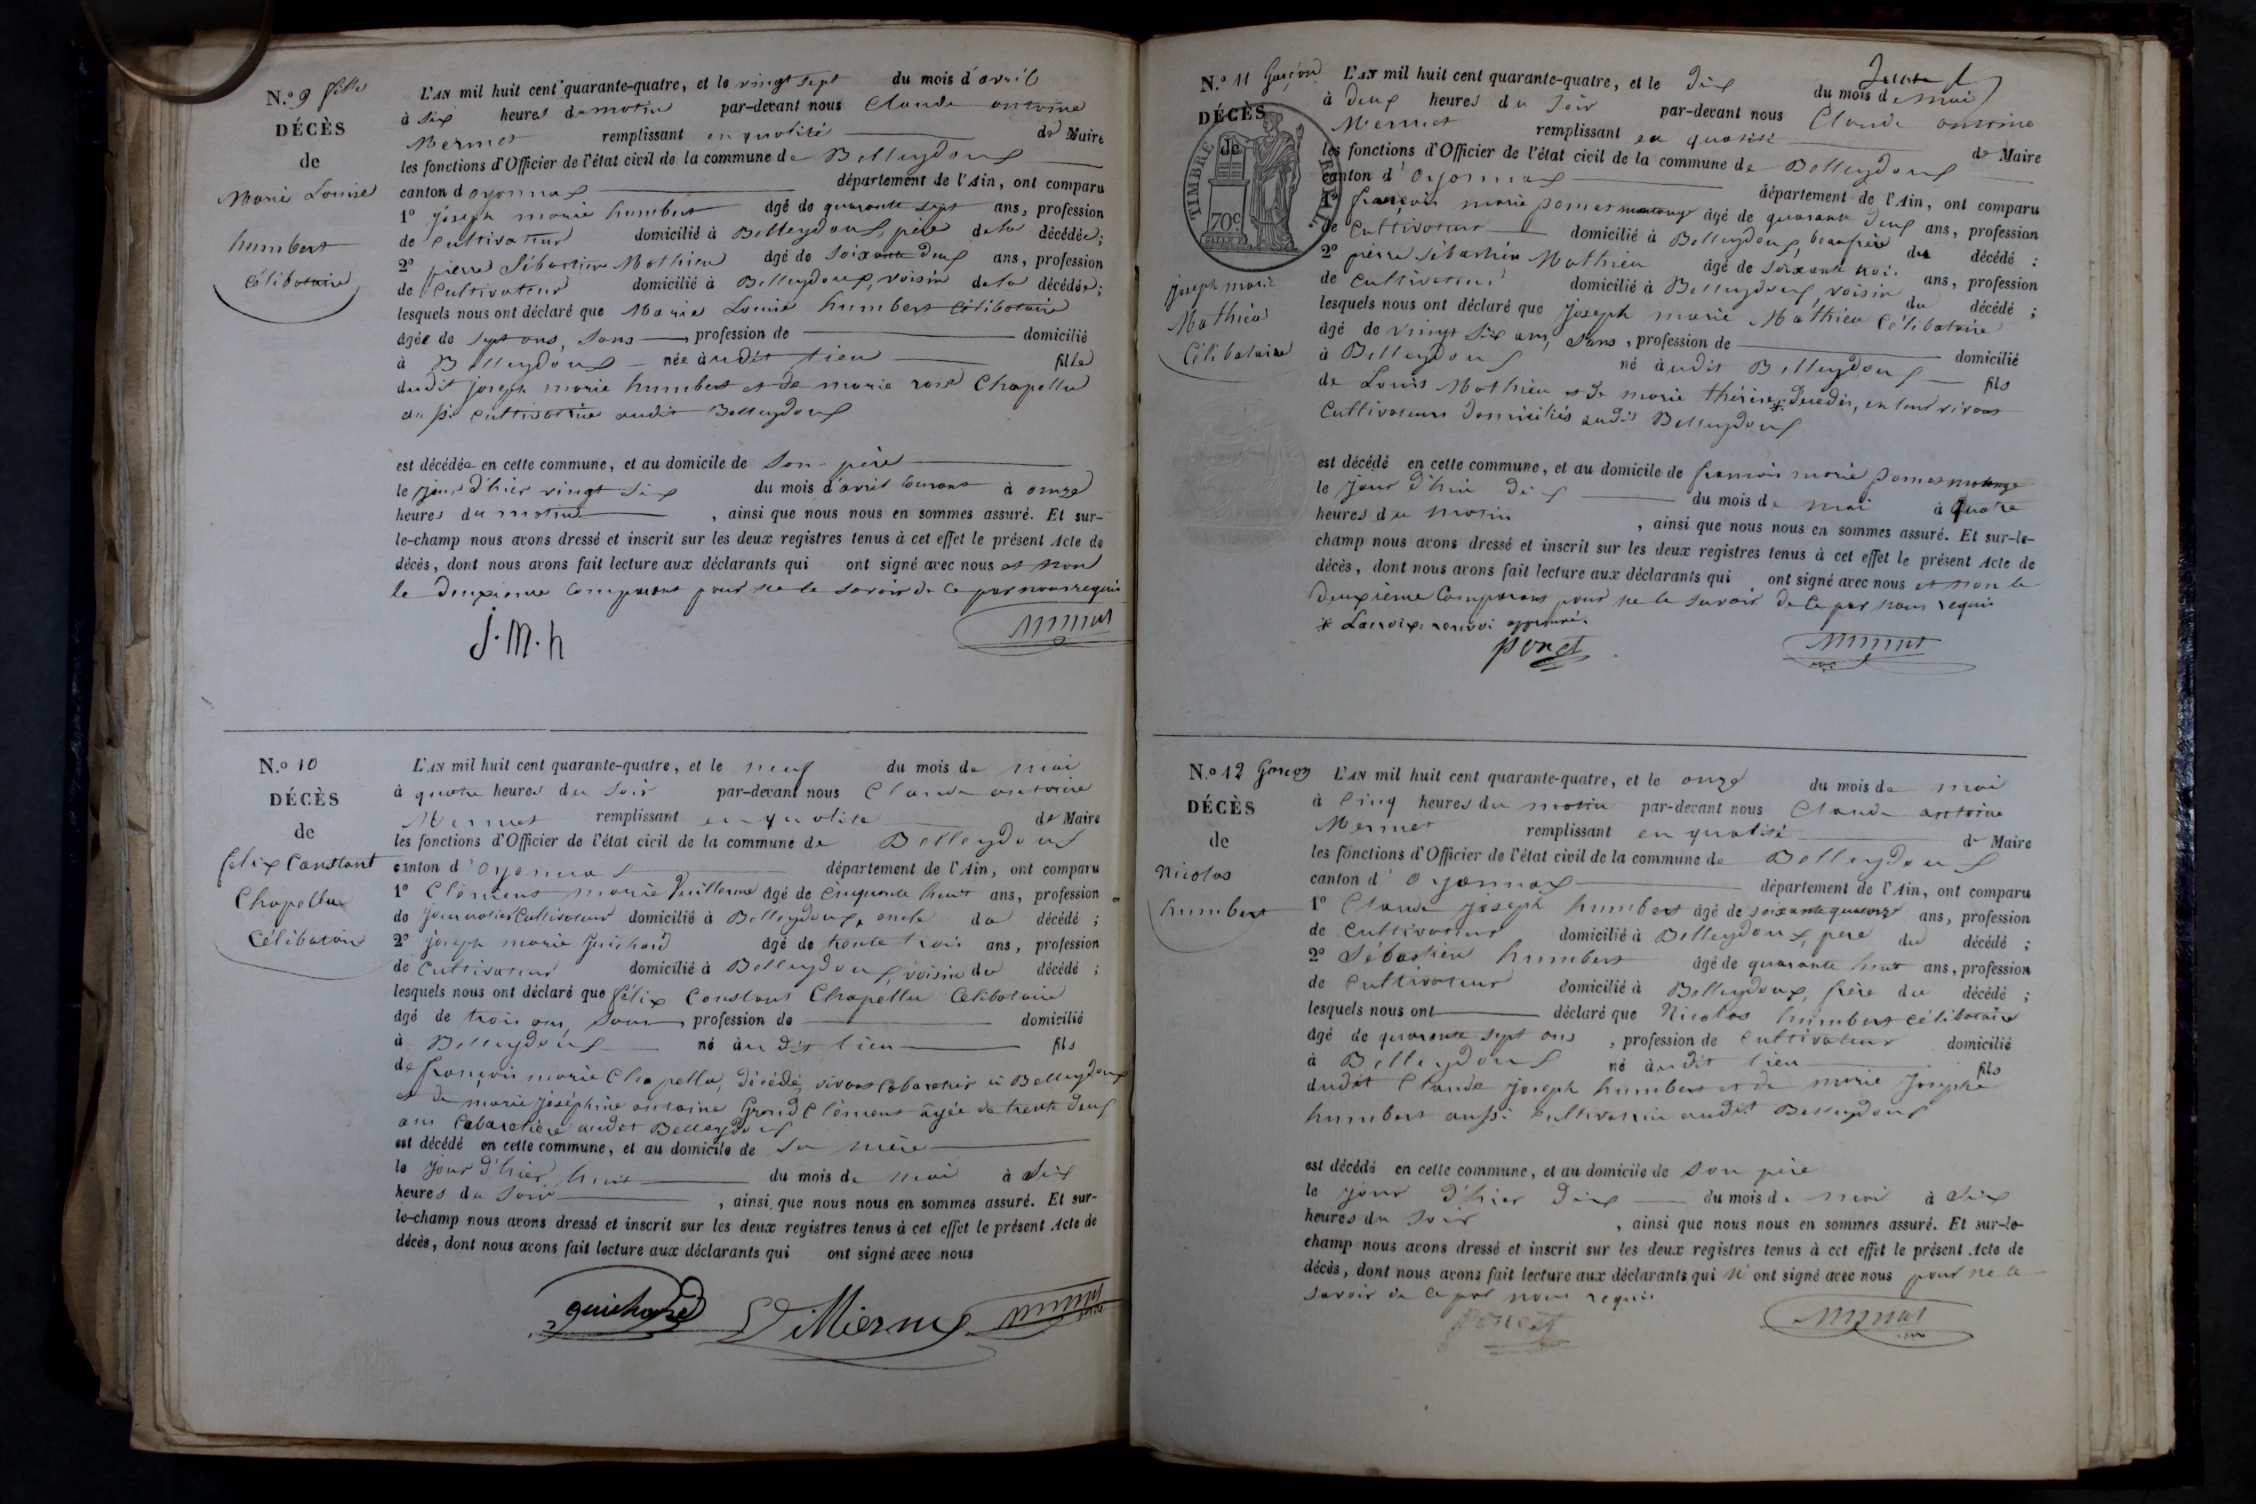 N.o 9 fille
DÉCÈS
de
Marie Louise
humbert
Célibataire
L'AN mil huit cent quarante-quatre, et le vingt sept du mois d'avril
à six heures du matin par-devant nous Claude antoine
Mermet remplissant en qualité de Maire
les fonctions d'Officier de l'état civil de la commune de Belleydoux
canton d'oyonnax département de l'Ain, ont comparu
1o joseph marie humbert âgé de quarante sept ans, profession
de Cultivateur domicilié à Belleydoux, père de la décédée;
2o pierre Sébastien Mathieu âgé de soixante deux ans, profession
de Cultivateur domicilié à Belleydoux, voisin de la décédée;
lesquels nous ont déclaré que Marie Louise humbert Célibataire
âgée de sept ans, sans profession de domicilié
à Belleydoux née àudit lieu fille
dudit joseph marie humbert et de marie rose Chapellu
aussi Cultivatrice audit Belleydoux
est décédée en cette commune, et au domicile de son père
le jour d'hier vingt six du mois d'avril courant à onze
heures du matin, ainsi que nous nous en sommes assuré. Et sur-
le-champ nous avons dressé et inscrit sur les deux registres tenus à cet effet le présent Acte de
décès, dont nous avons fait lecture aux déclarants qui ont signé avec nous et non
le deuxième Comparant pour ne le savoir de ce par nous requis
J. M. h
Mermet
N.o 10
DÉCÈS
de
félix Constant
Chapellu
Célibataire
L'AN mil huit cent quarante-quatre, et le neuf du mois de mai
à quatre heures du soir par-devant nous Claude antoine
Mermet remplissant en qualité de Maire
les fonctions d'Officier de l'état civil de la commune de Belleydoux
canton d'oyonnax département de l'Ain, ont comparu
1o Clément marie Vuillerme âgé de Cinquante huit ans, profession
de journalier Cultivateur domicilié à Belleydoux, oncle du décédé;
2o joseph marie Guichard âgé de trente trois ans, profession
de Cultivateur domicilié à Belleydoux, voisin du décédé;
lesquels nous ont déclaré que félix Constant Chapellu Célibataire
âgé de trois ans, sans profession de domicilié
à Belleydoux né àudit lieu fils
de françois marie Chapellu, décédé, vivant Cabaretier à Belleydoux
et de marie joséphine antoine Grand Clément âgée de trente deux
ans Cabaretière audit Belleydoux
est décédé en cette commune, et au domicile de sa mère
le jour d'hier huit du mois de mai à six
heures du soir, ainsi que nous nous en sommes assuré. Et sur-
le-champ nous avons dressé et inscrit sur les deux registres tenus à cet effet le présent Acte de
décès, dont nous avons fait lecture aux déclarants qui ont signé avec nous
guichard Mermet
N.o 11 Garçon
DÉCÈS
de
TIMBRE ROYAL
70c
joseph marie
Mathieu
Célibataire
L'AN mil huit cent quarante-quatre, et le dix du mois de mai
à deux heures du soir par-devant nous Claude antoine
Mermet remplissant en qualité de Maire
les fonctions d'Officier de l'état civil de la commune de Belleydoux
canton d'oyonnax département de l'Ain, ont comparu
1o françois marie Poncet montange âgé de quarante deux ans, profession
de Cultivateur domicilié à Belleydoux, beaufrère du décédé;
2o pierre Sébastien Mathieu âgé de soixante trois ans, profession
de Cultivateur domicilié à Belleydoux, voisin du décédé;
lesquels nous ont déclaré que joseph marie Mathieu Célibataire
âgé de vingt six ans, sans, profession de domicilié
à Belleydoux né àudit Belleydoux fils
de Louis Mathieu et de marie thérèse * décédés, en leur vivant
Cultivateurs domiciliés audit Belleydoux
est décédé en cette commune, et au domicile de françois marie Poncet montange
le jour d'hui dix du mois de mai à quatre
heures du matin, ainsi que nous nous en sommes assuré. Et sur-le-
champ nous avons dressé et inscrit sur les deux registres tenus à cet effet le présent Acte de
décès, dont nous avons fait lecture aux déclarants qui ont signé avec nous et non le
deuxième Comparant pour ne le savoir de ce par nous requis
* Lacroix, renvoi approuvé.
poncet
Mermet
N.o 12 Garçon
DÉCÈS
de
Nicolas
humbert
L'AN mil huit cent quarante-quatre, et le onze du mois de mai
à Cinq heures du matin par-devant nous Claude antoine
Mermet remplissant en qualité de Maire
les fonctions d'Officier de l'état civil de la commune de Belleydoux
canton d'oyonnax département de l'Ain, ont comparu
1o Claude joseph humbert âgé de soixante quatorze ans, profession
de Cultivateur domicilié à Belleydoux, père du décédé;
2o Sébastien humbert âgé de quarante huit ans, profession
de Cultivateur domicilié à Belleydoux, frère du décédé;
lesquels nous ont déclaré que Nicolas humbert Célibataire
âgé de quarante sept ans, profession de Cultivateur domicilié
à Belleydoux né àudit lieu fils
dudit Claude joseph humbert et de marie josephe
humbert aussi Cultivatrice audit Belleydoux
est décédé en cette commune, et au domicile de son père
le jour d'hier dix du mois de mai à six
heures du soir, ainsi que nous nous en sommes assuré. Et sur-le-
champ nous avons dressé et inscrit sur les deux registres tenus à cet effet le présent Acte de
décès, dont nous avons fait lecture aux déclarants qui n'ont signé avec nous pour ne le
savoir de ce par nous requis
Mermet